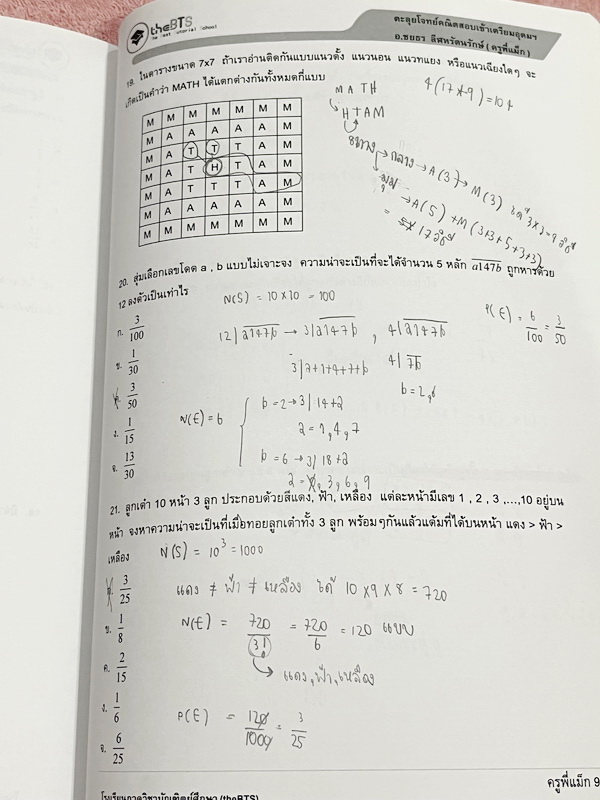 theBTS
The Best Tutorial School
ตะลุยโจทย์คณิตสอบเข้าเตรียมอุดมฯ
อ.ชยธร ลีฬหรัตนรักษ์ (ครูพี่แม็ก)
19. ในตารางขนาด 7x7 ถ้าเราอ่านติดกันแบบแนวตั้ง แนวนอน แนวทแยง หรือแนวเฉียงใดๆ จะ
เกิดเป็นคำว่า MATH ได้แตกต่างกันทั้งหมดกี่แบบ
M M M M M M M
M A A A A A M
M A T T T A M
M A T H T A M
M A T T T A M
M A A A A A M
M M M M M M M
MATH
HTAM
8ทาง → กลาง → A(3) → M(3) ได้ 3x3=9 วิธี
มุม → A(5) → M(3+3+5+3+3)
= 17 วิธี
4(17+9) = 104
20. สุ่มเลือกเลขโดด a , b แบบไม่เจาะจง ความน่าจะเป็นที่จะได้จำนวน 5 หลัก a147b ถูกหารด้วย
12 ลงตัวเป็นเท่าไร
N(S) = 10 x 10 = 100
ก. 3/100
ข. 1/30
3/50
ง. 1/15
จ. 13/30
12|a147b → 3|a147b , 4|a147b
3|a+1+4+7+b
4|7b
b = 2,6
P(E) = 6/100 = 3/50
N(E) = 6
b = 2 → 3|14+a
a = 1,4,7
b = 6 → 3|18+a
3,6,9
21. ลูกเต๋า 10 หน้า 3 ลูก ประกอบด้วยสีแดง, ฟ้า, เหลือง แต่ละหน้ามีเลข 1 , 2 , 3 ,...,10 อยู่บน
หน้า จงหาความน่าจะเป็นที่เมื่อทอยลูกเต๋าทั้ง 3 ลูก พร้อมๆกันแล้วแต้มที่ได้บนหน้า แดง > ฟ้า >
เหลือง
N(S) = 10³ = 1000
3/25
ข. 1/8
ค. 2/15
ง. 1/6
จ. 6/25
แดง ≠ ฟ้า ≠ เหลือง ได้ 10 x 9 x 8 = 720
N(E) = 720/3! = 720/6 = 120 แบบ
แดง, ฟ้า, เหลือง
P(E) = 120/1000 = 3/25
ครูพี่แม็ก 9
โรงเรียนกวดวิชาบัณฑิตย์ศึกษา (theBTS)